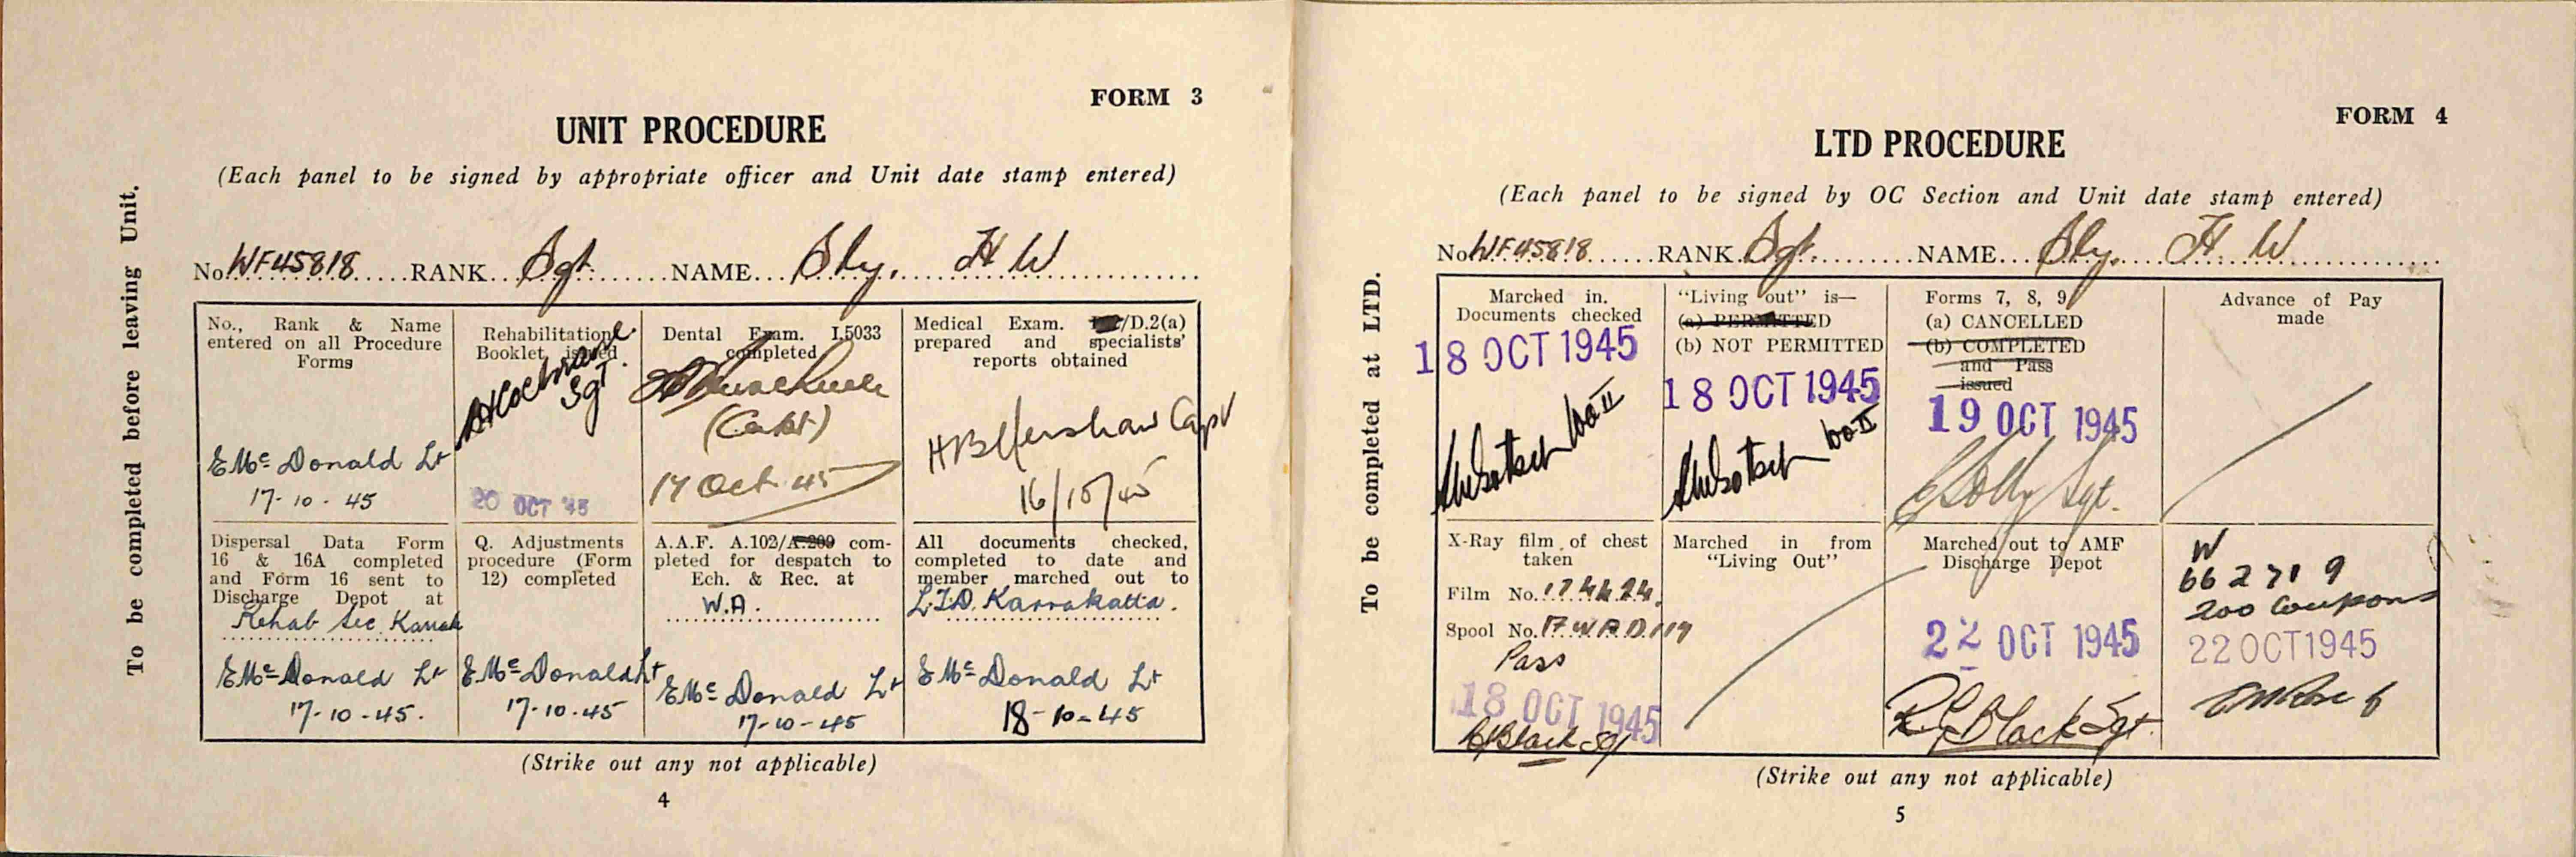 FORM 3
UNIT PROCEDURE
(Each panel to be signed by appropriate officer and Unit date stamp entered)
To be completed before leaving Unit.
No. WF45818 RANK Sgt. NAME Sly. H W
No., Rank & Name
entered on all Procedure
Forms
E Mc Donald Lt
17-10-45
Rehabilitation
Booklet issued
Sgt.
20 OCT 45
Dental Exam. I.5033
completed
(Capt)
17 Oct 45
Medical Exam. /D.2(a)
prepared and specialists'
reports obtained
Capt
16/10/45
Dispersal Data Form
16 & 16A completed
and Form 16 sent to
Discharge Depot at
Rehab Sec. Karrak
E Mc Donald Lt
17-10-45.
Q. Adjustments
procedure (Form
12) completed
E Mc Donald Lt
17-10-45
A.A.F. A.102/A.209 com-
pleted for despatch to
Ech. & Rec. at
W.A.
E Mc Donald Lt
17-10-45
All documents checked,
completed to date and
member marched out to
L.T.D. Karrakatta.
E Mc Donald Lt
18-10-45
(Strike out any not applicable)
4
FORM 4
LTD PROCEDURE
(Each panel to be signed by OC Section and Unit date stamp entered)
To be completed at LTD.
No. WF45818 RANK Sgt. NAME Sly. H. W
Marched in.
Documents checked
18 OCT 1945
WO II
"Living out" is—
(a) PERMITTED
(b) NOT PERMITTED
18 OCT 1945
WO II
Forms 7, 8, 9
(a) CANCELLED
(b) COMPLETED
and Pass
issued
19 OCT 1945
Sgt.
Advance of Pay
made
X-Ray film of chest
taken
Film No. 174424.
Spool No. 17 W.R.D. 119
Pass
18 OCT 1945
Black Sgt
Marched in from
"Living Out"
Marched out to AMF
Discharge Depot
22 OCT 1945
Black Sgt.
W
662719
200 Coupons
22 OCT 1945
(Strike out any not applicable)
5